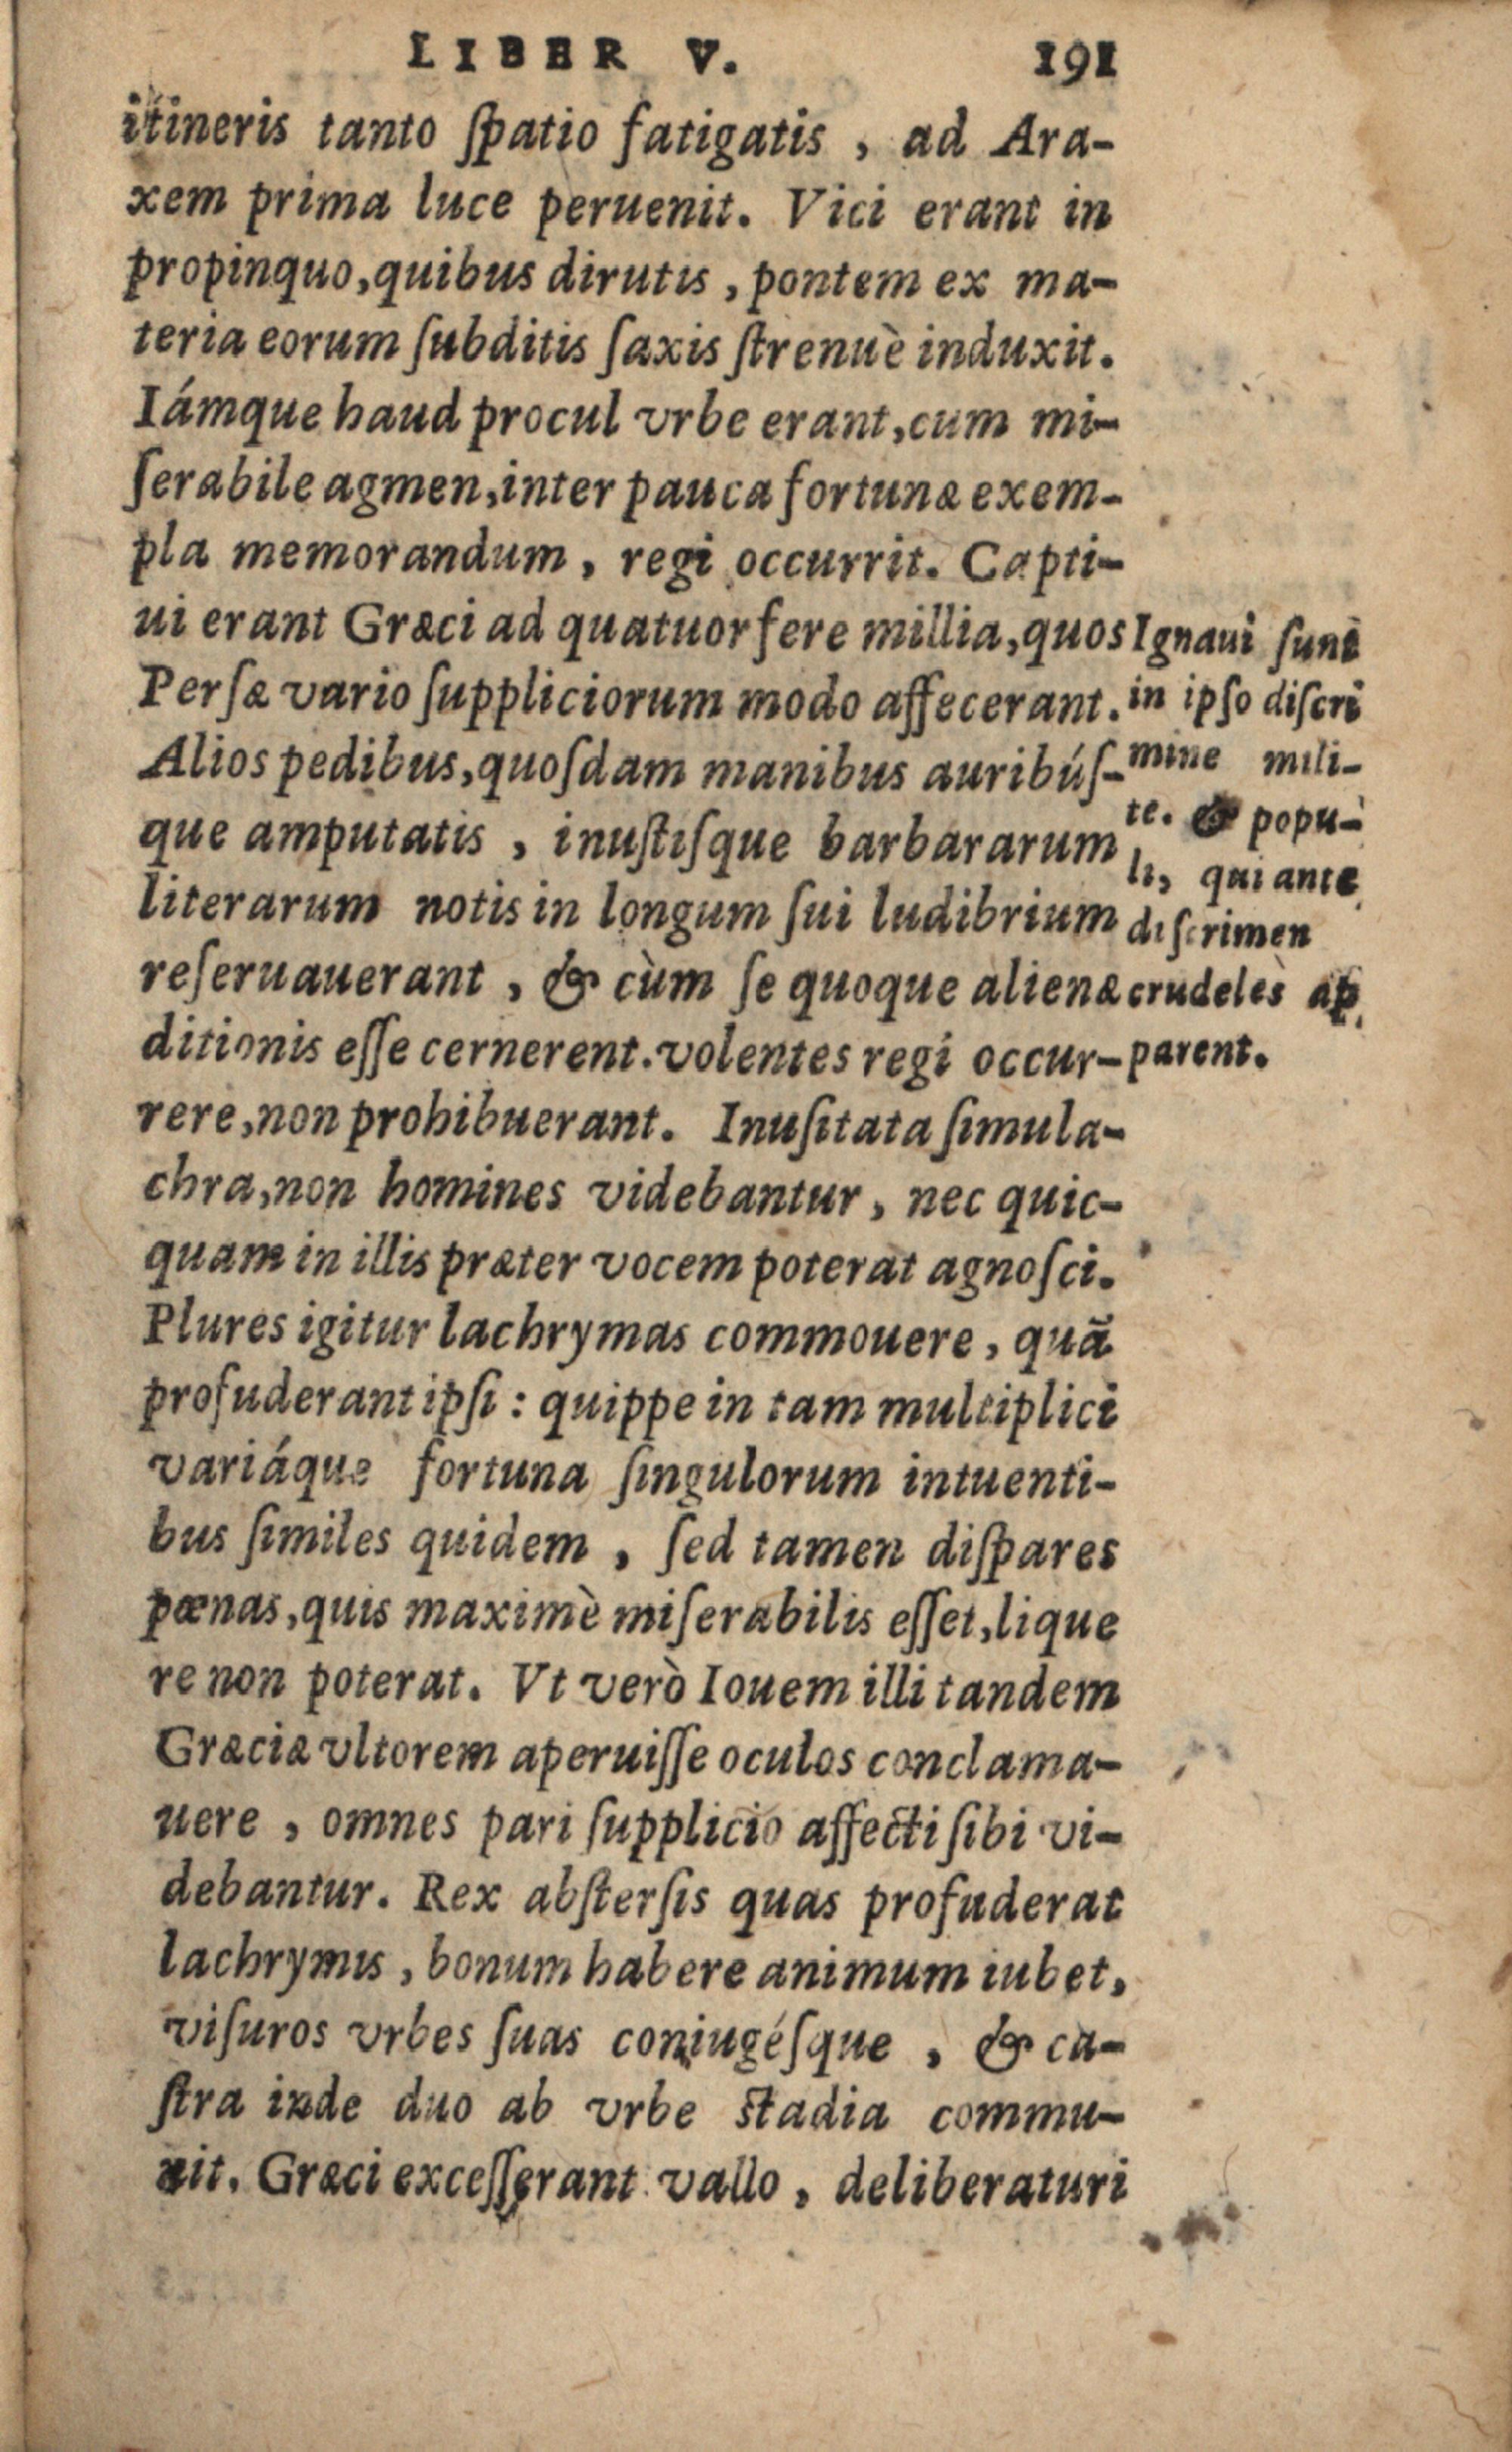 LIBER V. 191
itineris tanto ſpatio fatigatis , ad Ara-
xem prima luce peruenit. Vici erant in
propinquo,quibus dirutis , pontem ex ma-
teria eorum ſubditis ſaxis ſtrenuè induxit.
Iámque haud procul vrbe erant,cum mi-
ſerabile agmen,inter pauca fortunæ exem-
pla memorandum, regi occurrit. Capti-
ui erant Græci ad quatuor fere millia,quos
Perſæ vario ſuppliciorum modo affecerant.
Alios pedibus,quoſdam manibus auribúſ-
que amputatis , inuſtiſque barbararum
literarum notis in longum ſui ludibrium
reſeruauerant , & cùm ſe quoque alienæ
ditionis eſſe cernerent.volentes regi occur-
rere,non prohibuerant. Inuſitata ſimula-
chra,non homines videbantur , nec quic-
quam in illis præter vocem poterat agnoſci.
Plures igitur lachrymas commouere , quã
profuderant ipſi : quippe in tam multiplici
variáque fortuna ſingulorum intuenti-
bus ſimiles quidem , ſed tamen diſpares
pœnas,quis maximè miſerabilis eſſet,lique
re non poterat. Vt verò Iouem illi tandem
Græciæ vltorem aperuiſſe oculos conclama-
uere , omnes pari ſupplicio affecti ſibi vi-
debantur. Rex abſterſis quas profuderat
lachrymis , bonum habere animum iubet,
viſuros vrbes ſuas coniugéſque , & ca-
ſtra inde duo ab vrbe ſtadia commu-
nit. Græci exceſſerant vallo , deliberaturi
Ignaui ſunt
in ipſo diſcri
mine mili-
te. & popu-
li, qui ante
diſcrimen
crudeles ap
parent.